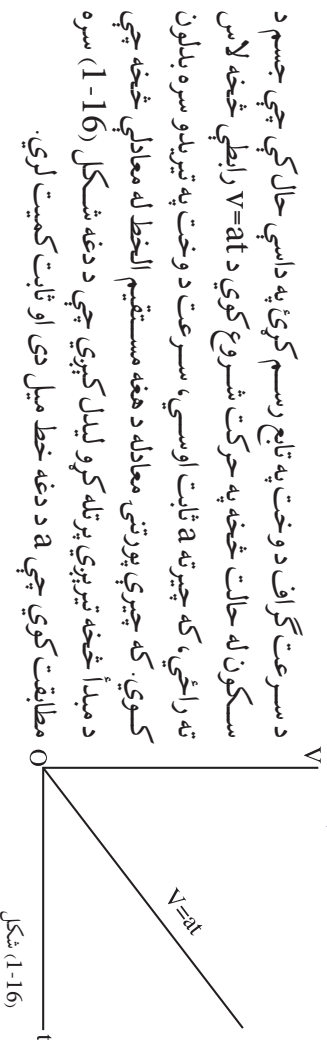 د سرعت گراف د وخت په تابع رسم کړئ په داسې حال کې چې جسم د
سکون له حالت څخه په حرکت شروع کوي د v=at رابطې څخه لاس
ته راځي، که چېرته a ثابت اوسي، سرعت د وخت په تېرېدو سره بدلون
کوي. که چېرې پورتنۍ معادله د هغه مستقيم الخط له معادلې څخه چې
د مبدأ څخه تېرېږي پرتله کړو ليدل کېږي چې د دغه شکل (1-16) سره
مطابقت کوي چې a د دغه خط ميل دی او ثابت کميت لري.
V
V=at
O
t
(1-16) شکل